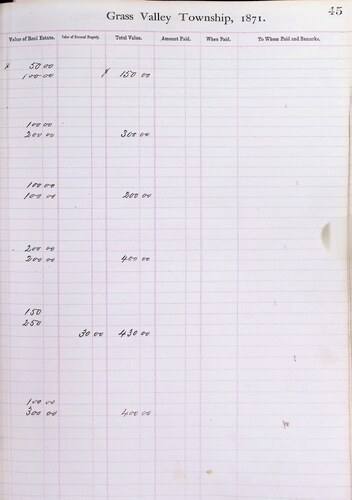 Grass Valley Township, 1871. 45
Value of Real Estate. Value of Personal Property. Total Value. Amount Paid. When Paid. To Whom Paid and Remarks.
$ 50 00
100 00 $ 150 00
100 00
200 00 300 00
100 00
100 00 200 00
200 00
200 00 400 00
150
250
30 00 430 00
100 00
300 00 400 00